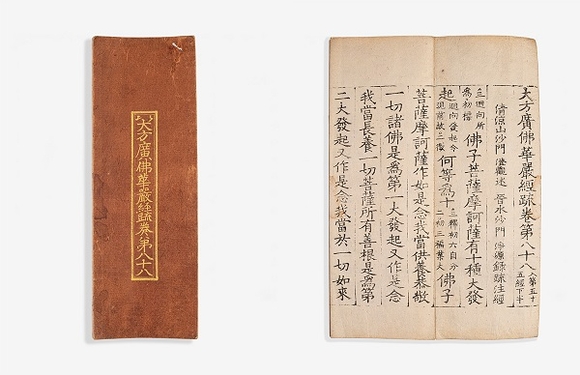 大方廣佛華嚴經疏卷第八十八
大方廣佛華嚴經疏卷第八十八 入第五十五經下半
清涼山沙門 澄觀述 晉水沙門 淨源錄疏注經
為初標 佛子菩薩摩訶薩有十種大發
起 何等為十 三釋初六自分 佛子
菩薩摩訶薩作如是念我當供養恭敬
一切諸佛是為第一大發起又作是念
我當長養一切菩薩所有善根是為第
二大發起又作是念我當於一切如來